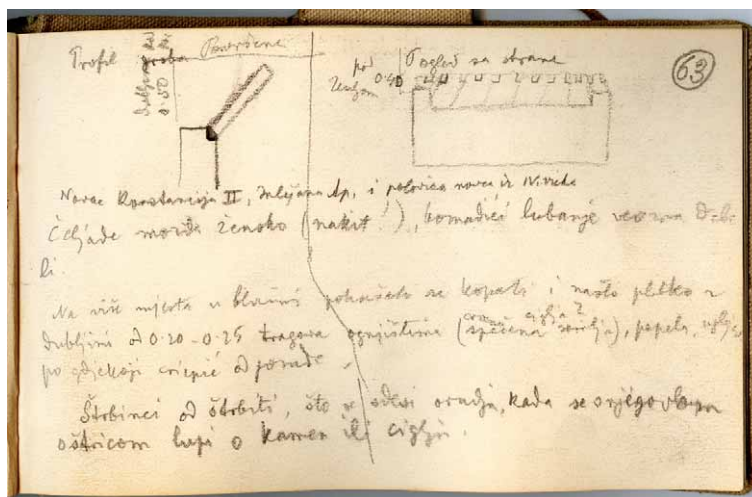 Profil groba Površina
Pogled sa strane
63
pod
zemljom 0.40
0.50
Novac Konstancija II, Julijana Ap. i polovica novca iz IV. vieka
Čeljade možda žensko (nakit!), komadići lubanje veoma debe
li.
Na više mjesta u blizini pokušalo se kopati i našlo plitko u
dubljini od 0.20-0.25 tragova ognjištima (crvena ciglja?
spečena zemlja), pepela, uglje
po gdjekoji criepić od posude.
Štrbinci od štrbiti, što se odlomi oruđu, kada se njegovom
oštricom lupi o kamen ili ciglju.